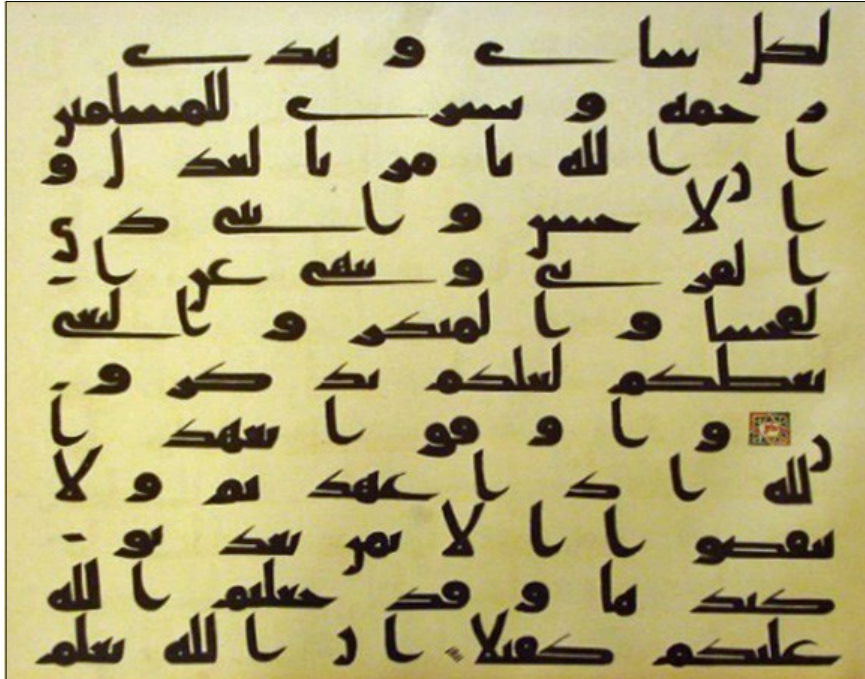 لكل شاى و هدى
و رحمة و بشرى للمسلمين
ان الله يامر بالعدل و
الاحسن و ايتاى ذي
القربى و ينهى عن ا
لفحشا و المنكر و البغى
يعظكم لعلكم تذكرو
ن و اوفوا بعهد ا
لله اذا عهدتم و لا
تنقضوا الايمن بعد تو
كيدها و قد جعلتم الله
عليكم كفيلا ان الله يعلم